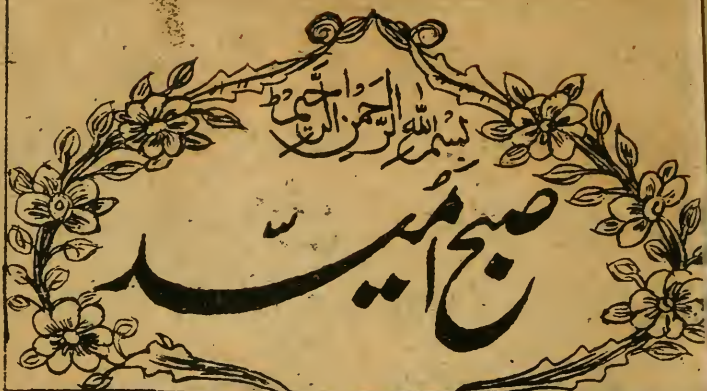 بسم الله الرحمن الرحيم
صبح اُمیّد